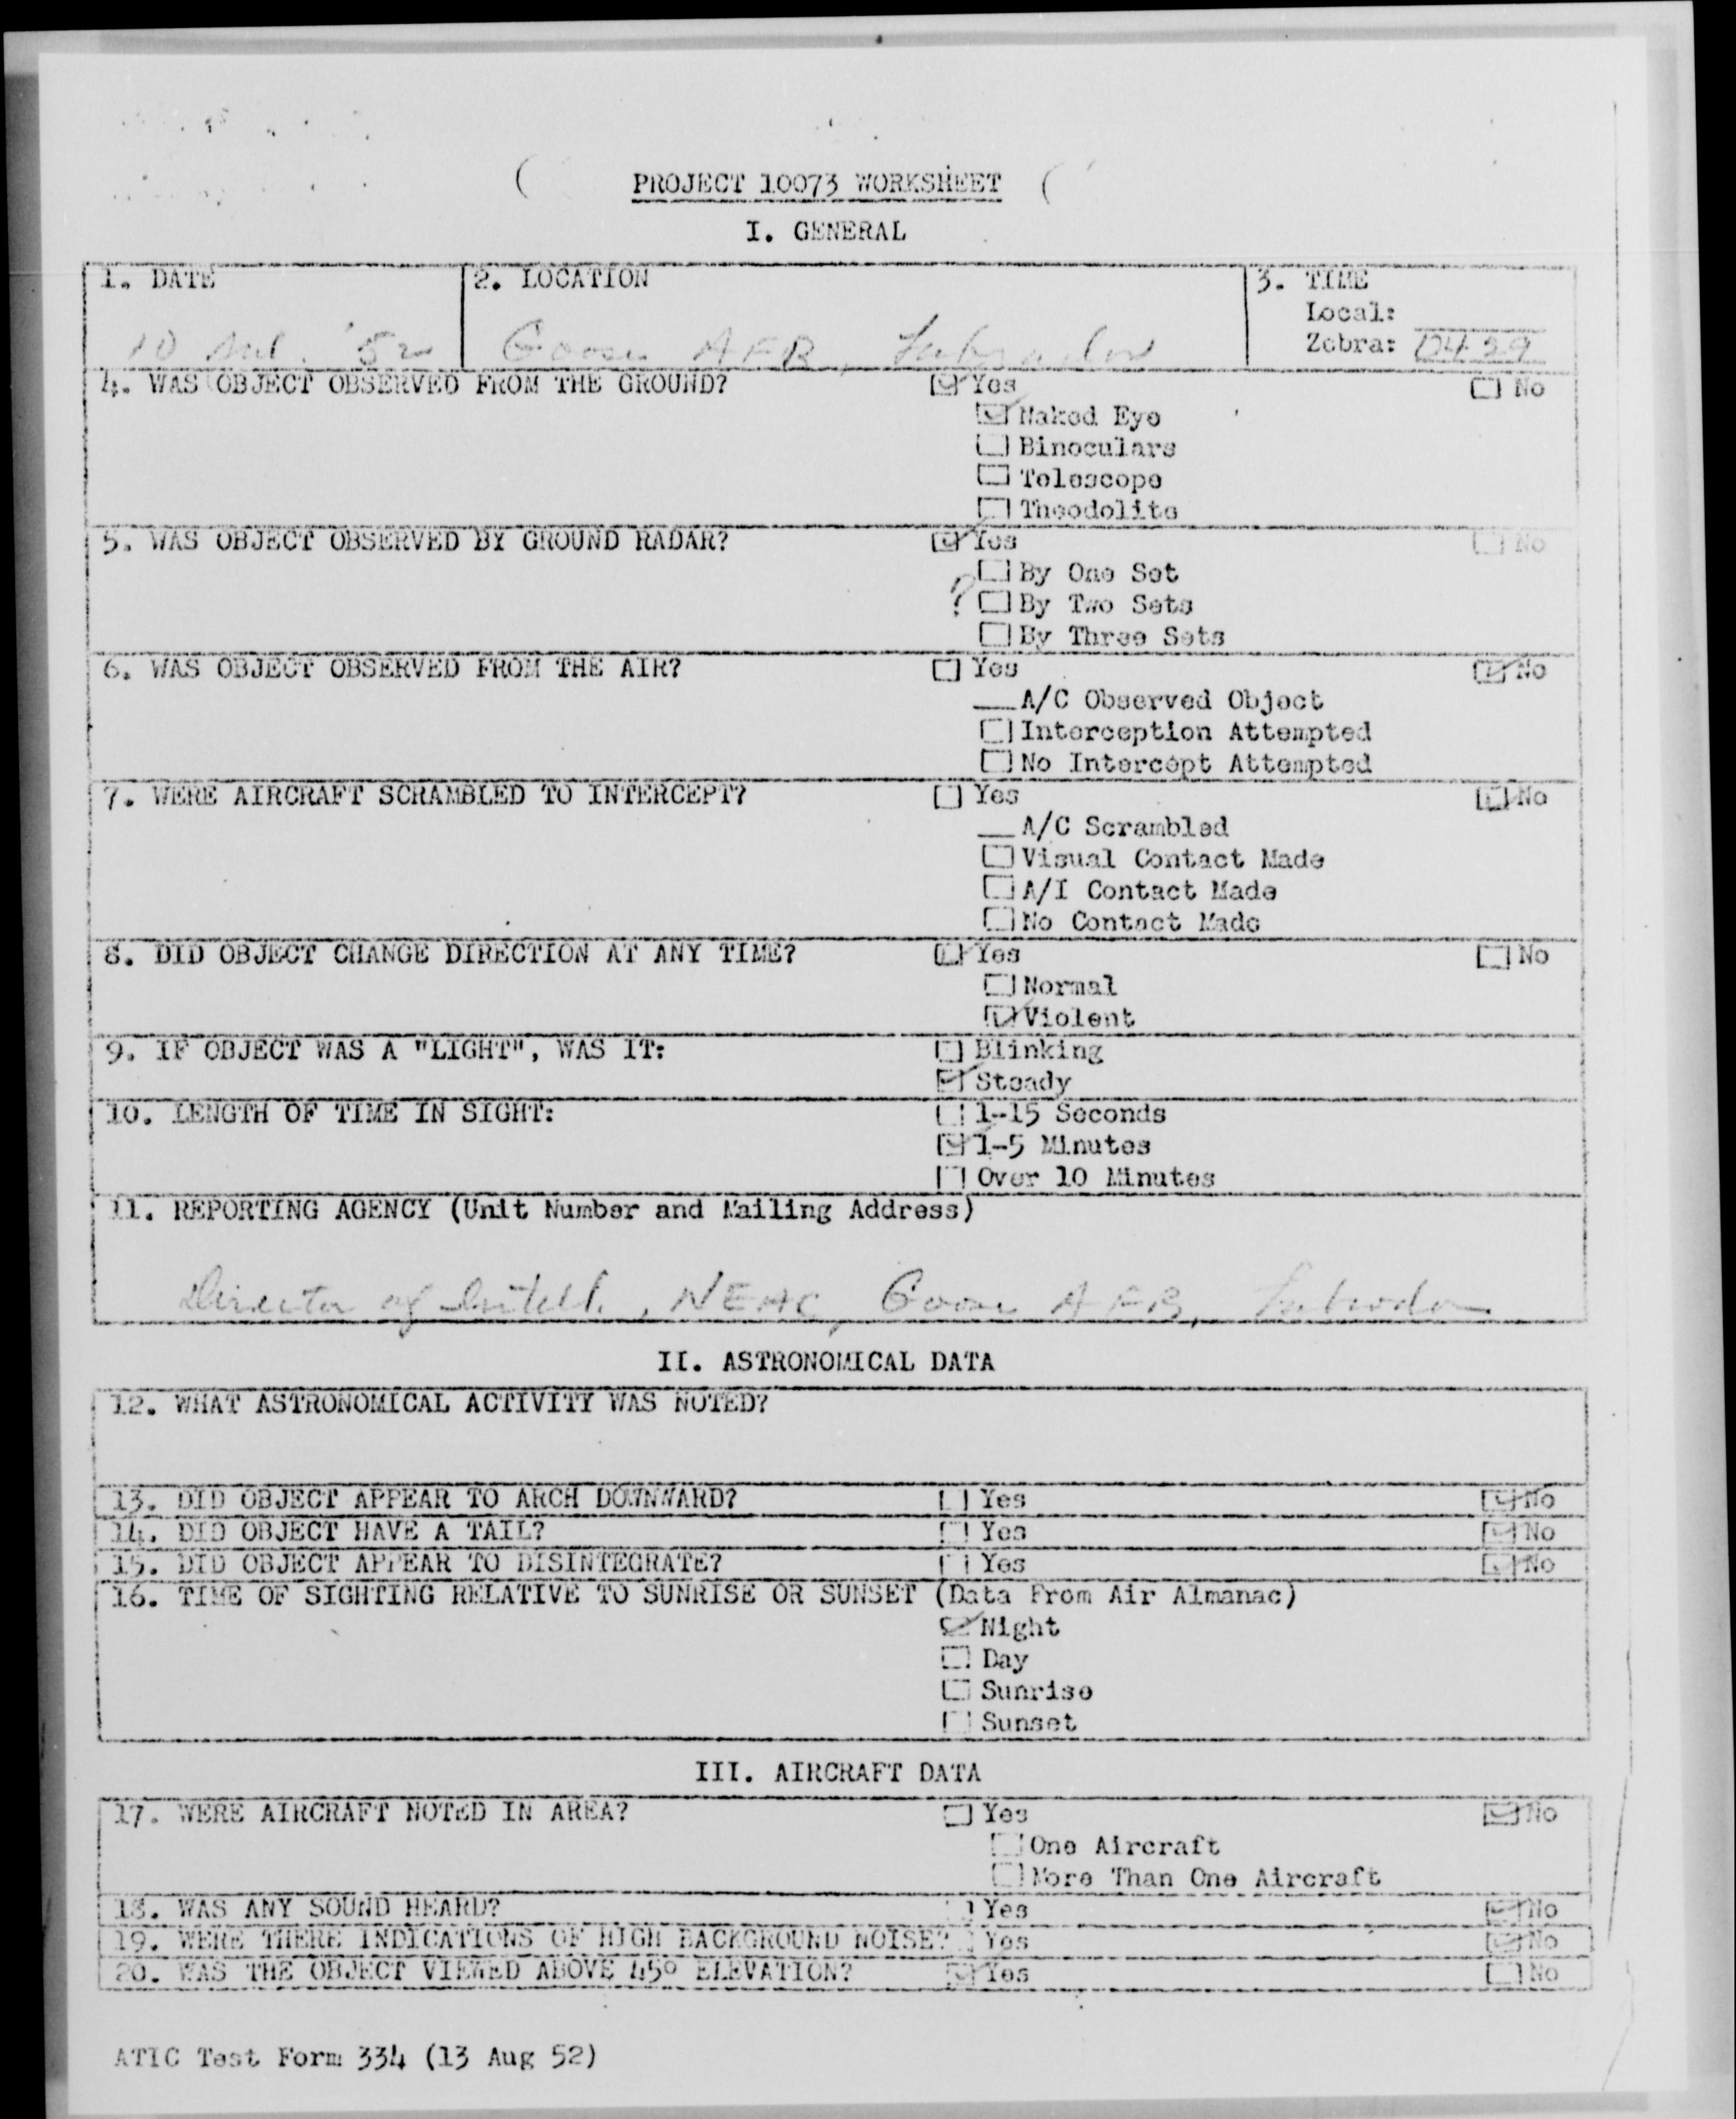 PROJECT 10073 WORKSHEET
I. GENERAL
1. DATE
10 '52
2. LOCATION
Goose AFB, Labrador
3. TIME
Local:
Zebra:
4. WAS OBJECT OBSERVED FROM THE GROUND? Yes No
Naked Eye
Binoculars
Telescope
Theodolite
5. WAS OBJECT OBSERVED BY GROUND RADAR? Yes No
By One Set
? By Two Sets
By Three Sets
6. WAS OBJECT OBSERVED FROM THE AIR? Yes No
A/C Observed Object
Interception Attempted
No Intercept Attempted
7. WERE AIRCRAFT SCRAMBLED TO INTERCEPT? Yes No
A/C Scrambled
Visual Contact Made
A/I Contact Made
No Contact Made
8. DID OBJECT CHANGE DIRECTION AT ANY TIME? Yes No
Normal
Violent
9. IF OBJECT WAS A "LIGHT", WAS IT: Blinking
Steady
10. LENGTH OF TIME IN SIGHT: 1-15 Seconds
1-5 Minutes
Over 10 Minutes
11. REPORTING AGENCY (Unit Number and Mailing Address)
Director of Intell., NEAC, Goose AFB, Labrador
II. ASTRONOMICAL DATA
12. WHAT ASTRONOMICAL ACTIVITY WAS NOTED?
13. DID OBJECT APPEAR TO ARCH DOWNWARD? Yes No
14. DID OBJECT HAVE A TAIL? Yes No
15. DID OBJECT APPEAR TO DISINTEGRATE? Yes No
16. TIME OF SIGHTING RELATIVE TO SUNRISE OR SUNSET (Data From Air Almanac)
Night
Day
Sunrise
Sunset
III. AIRCRAFT DATA
17. WERE AIRCRAFT NOTED IN AREA? Yes No
One Aircraft
More Than One Aircraft
18. WAS ANY SOUND HEARD? Yes No
19. WERE THERE INDICATIONS OF HIGH BACKGROUND NOISE? Yes No
20. WAS THE OBJECT VIEWED ABOVE 45° ELEVATION? Yes No
ATIC Test Form 334 (13 Aug 52)